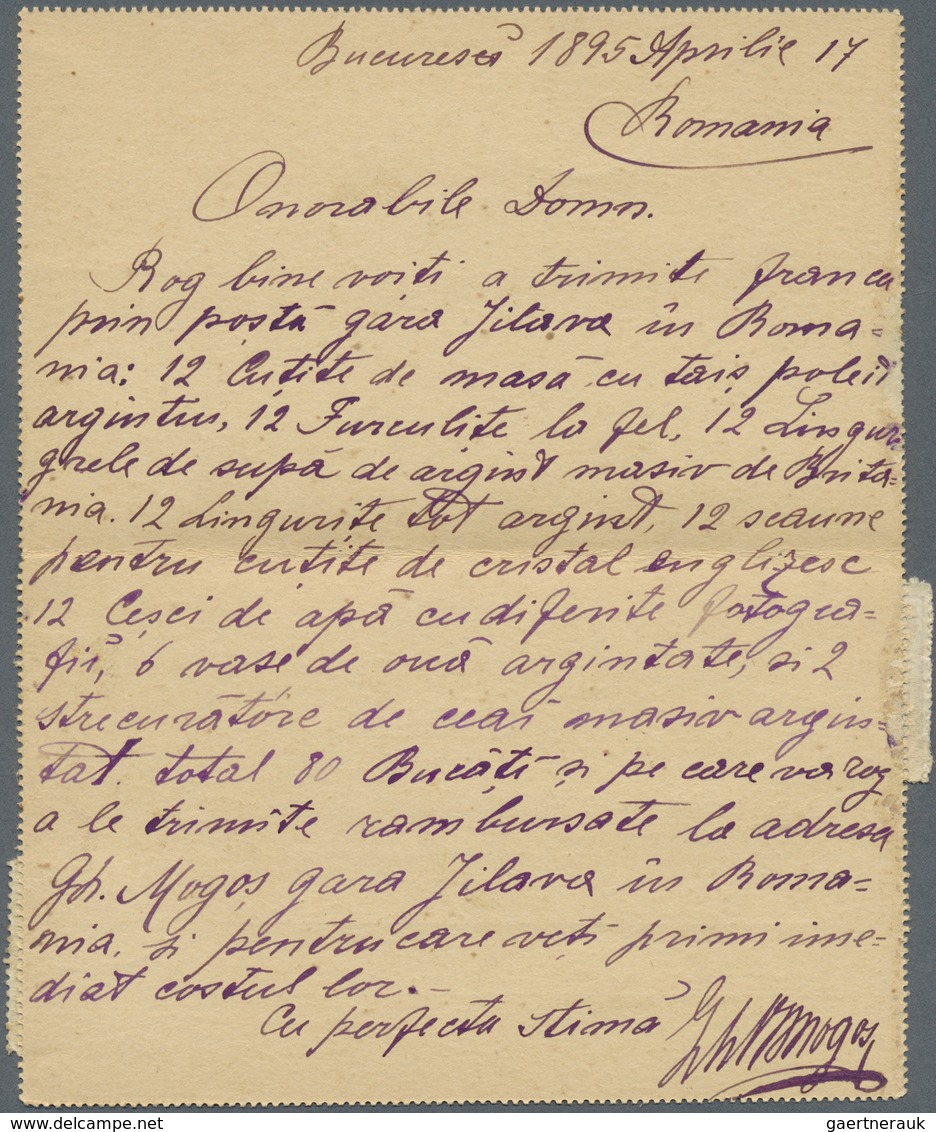 Bucuresci 1895 Aprilie 17
Romania
Onorabile Domn.
Rog bine voiti a trimite franco
prin poștă gara Jilava în Roma-
nia: 12 Cuțite de masă cu taiș poleit
argintiu, 12 Furculite la fel, 12 Lingur
grele de supă de argint masiv de Brita=
nia. 12 Lingurițe tot argint, 12 scaune
pentru cutite de cristal englizesc
12 Cesci de apă cu diferite fotogra=
fii, 6 vase de ouă argintate, si 2
strecurătore de ceai masiv argin=
tat. total 80 Bucăți și pe care va rog
a le trimite rambursate la adresa
Gh. Mogoș gara Jilava în Roma=
nia, și pentru care veți primi ime=
diat costul lor.-
Cu perfecta stimă Gh Mogoș
www.delcampe.net
gaertnerauk